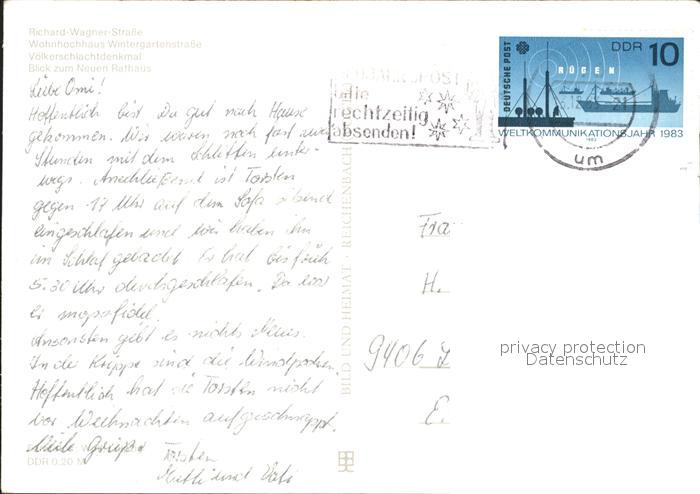 Richard-Wagner-Straße
Wohnhochhaus Wintergartenstraße
Völkerschlachtdenkmal
Blick zum Neuen Rathaus
Liebe Omi!
Hoffentlich bist Du gut nach Hause
gekommen. Wir waren noch fast zwei
Stunden mit dem Schlitten unter-
wegs. Anschließend ist Torsten
gegen 17 Uhr auf dem Sofa sitzend
eingeschlafen und wir haben ihn
im Schlaf gebadet. Er hat bis früh
5.30 Uhr durchgeschlafen. Da war
er mopsfidel.
Ansonsten gibt es nichts Neues.
In der Krippe sind die Windpocken.
Hoffentlich hat sie Torsten nicht
vor Weihnachten aufgeschnappt.
Viele Grüße
Torsten
Mutti und Vati
DDR 0.20 M
BILD UND HEIMAT · REICHENBACH
POST
rechtzeitig
absenden!
DEUTSCHE POST
DDR 10
RÜGEN
WELTKOMMUNIKATIONSJAHR 1983
um
Fra
H.
9406
E.
privacy protection
Datenschutz